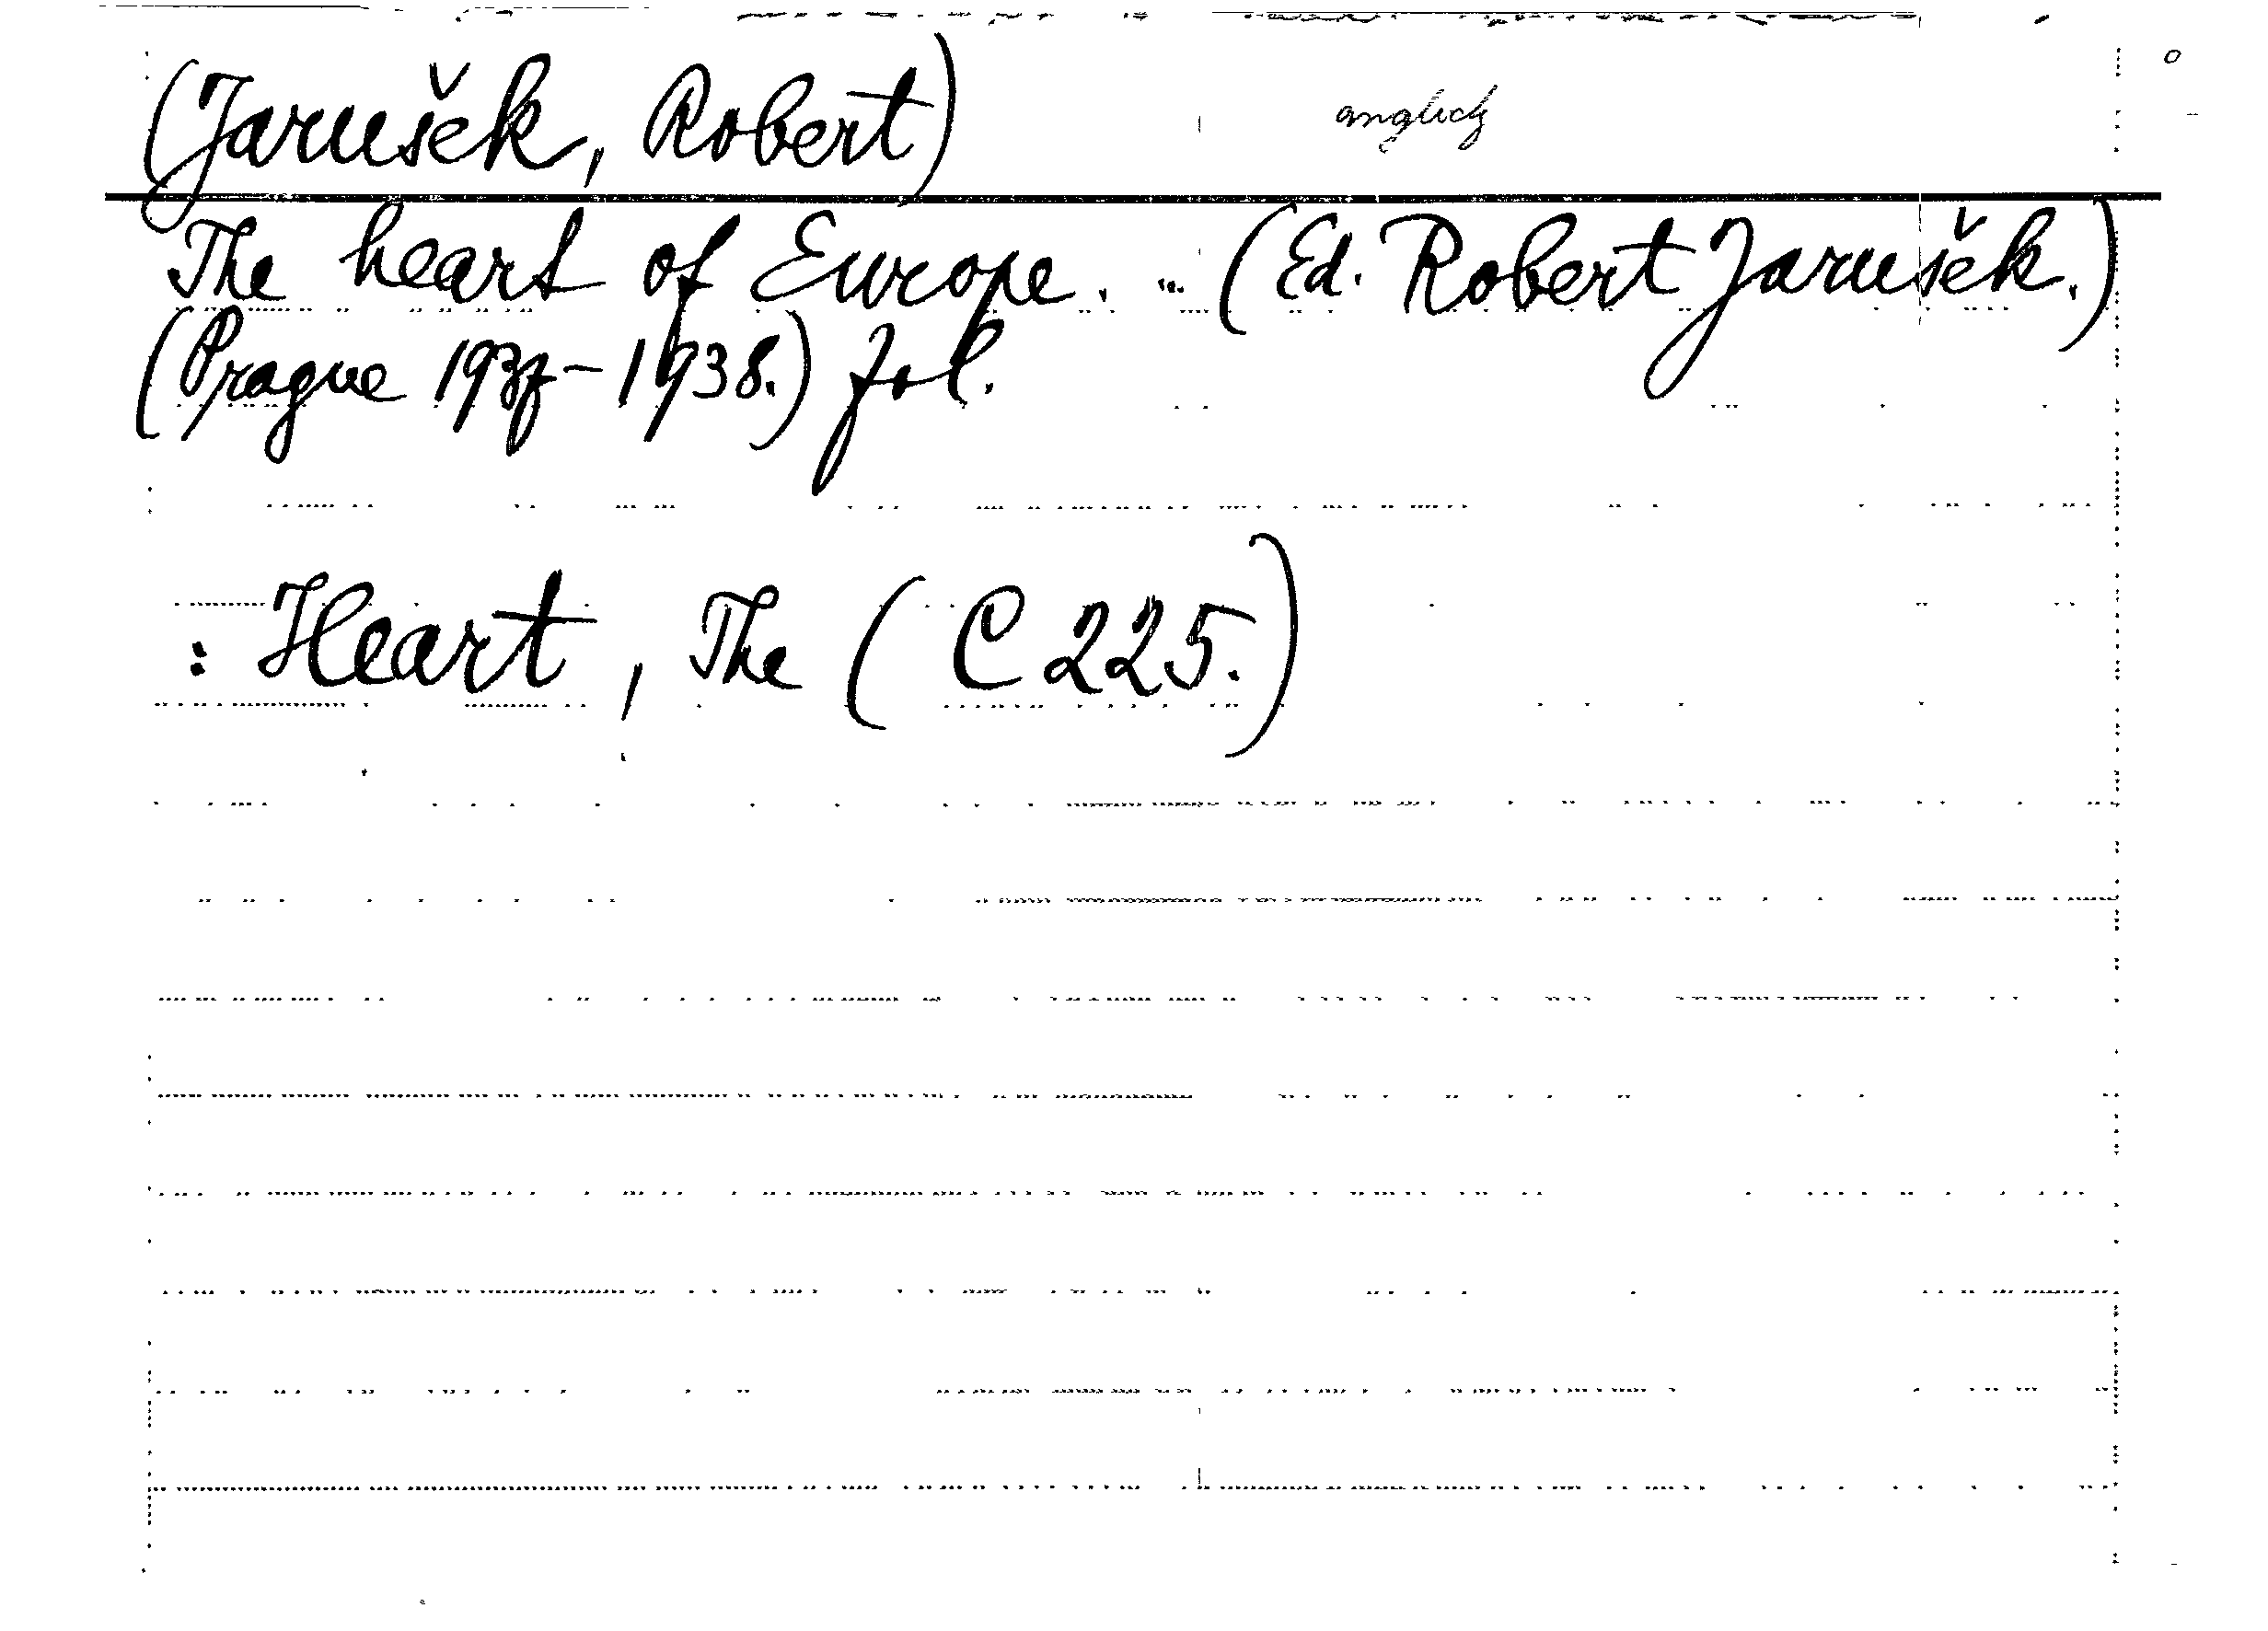 (Jarušek, Robert) anglicky
The heart of Europe. .. (Ed. Robert Jarušek.)
(Prague 1937-1938.) fol.
: Heart, The (C 225.)